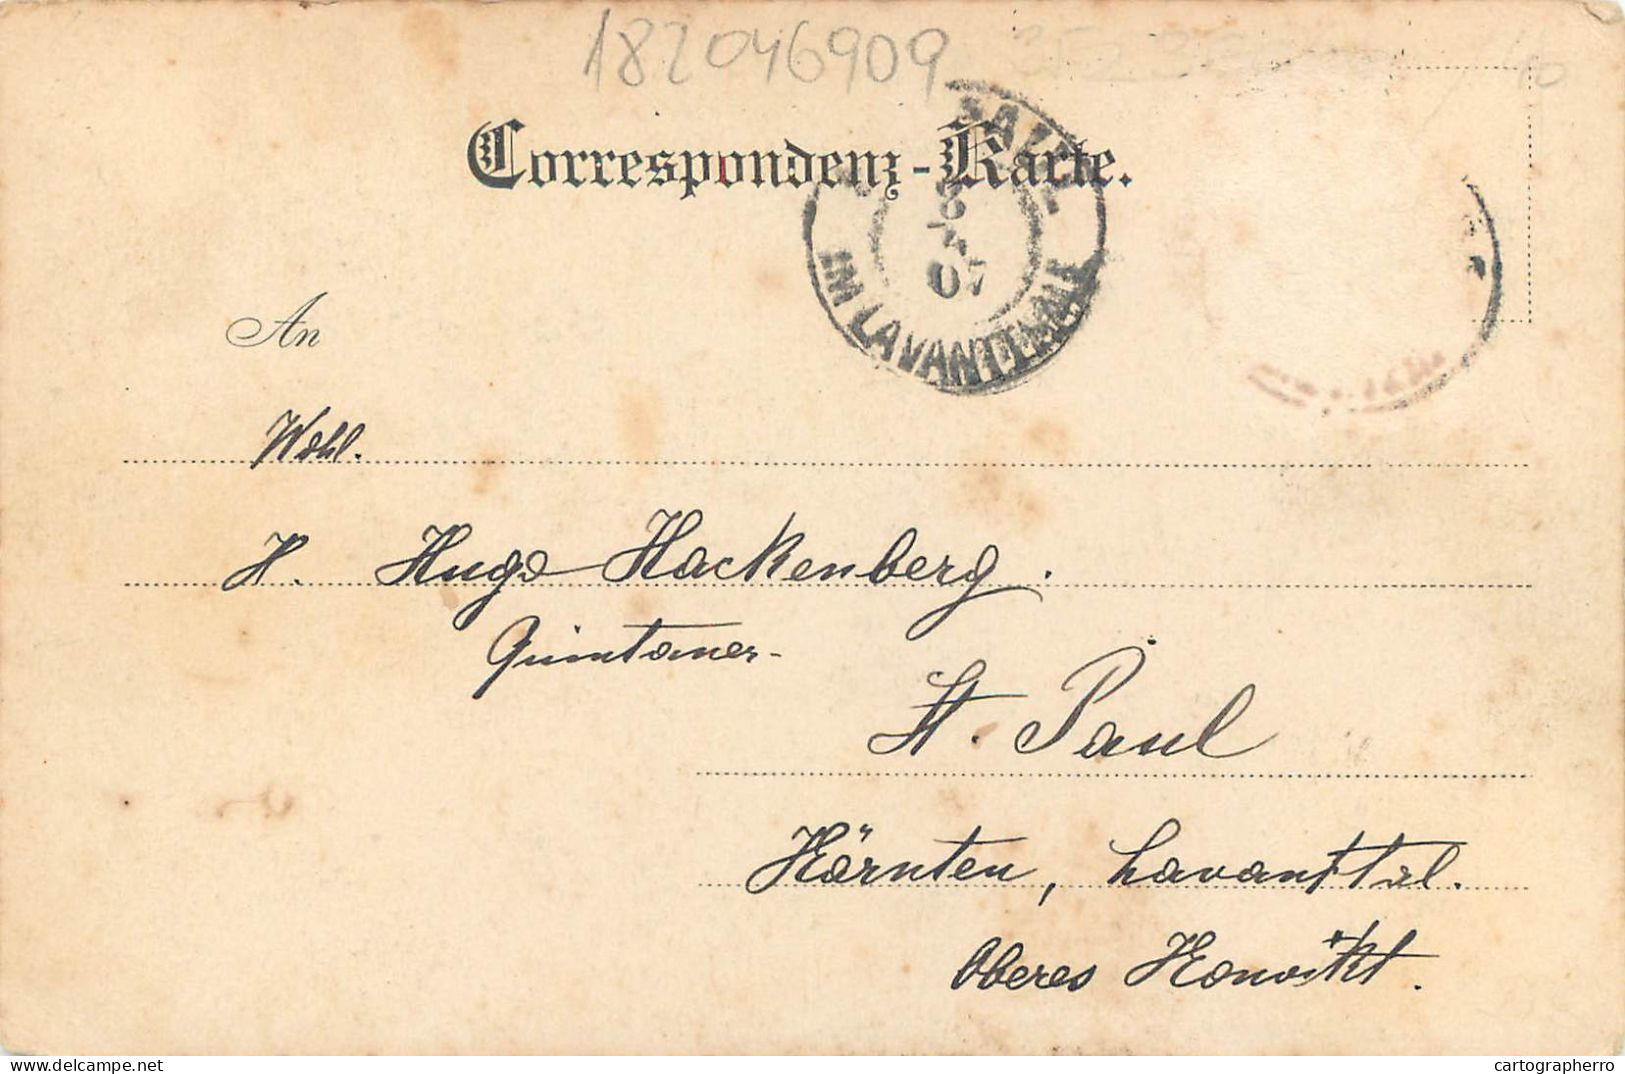 182046909
Correspondenz-Karte.
PAUL
6
4
07
IM LAVANTTHALE
An
Wohl.
H. Hugo Hackenberg.
Quintaner
St. Paul
Kärnten, Lavanttal.
Oberes Konvikt.
delcampe.net
cartographerro